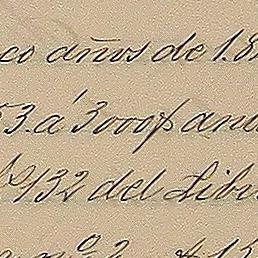 co años de 1.8
53. á 3000 p anu
132 del Libr
nº 2